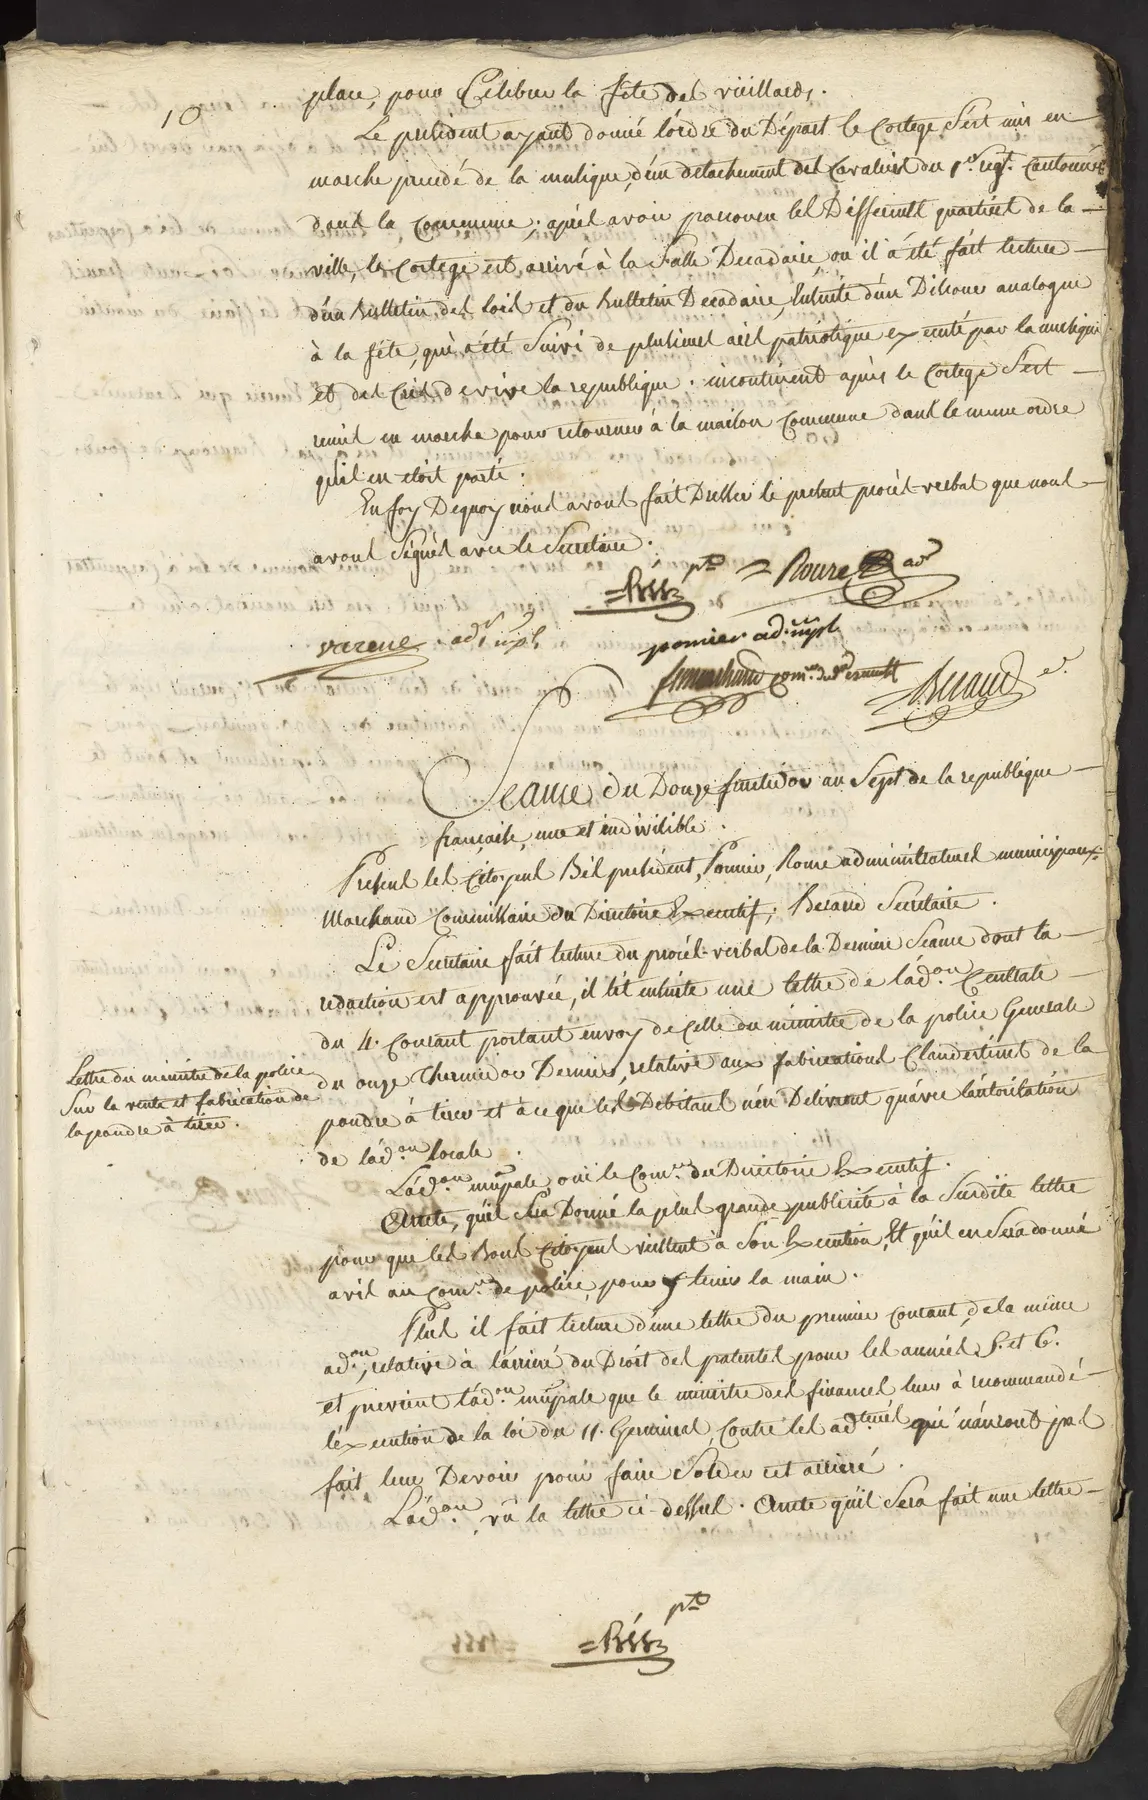 10
place, pour Célébrer la fête des vieillards.
Le président ayant donné l'ordre du Départ le Cortege s'est mis en
marche precedé de la musique, d'un detachement des Cavaliers du 1er regt. Cantonnés
dans la Commune; après avoir parcouru les Differents quartiers de la
ville, le Cortege est arrivé à la Salle Decadaire ou il a été fait lecture
d'un Bulletin des lois et du Bulletin Decadaire, Ensuite d'un Discours analogue
à la fête, qui a été Suivi de plusieurs airs patriotique executé par la musique
et des Cris de vive la republique. incontinent après le Cortege s'est
remis en marche pour retourner à la maison Commune dans le meme ordre
qu'il en etoit parti.
En foy Dequoy nous avons fait Dresser le present procès-verbal que nous
avons Signés avec le Secretaire.
=Bés pt = Roure ador
varene adr mpl pomier ad. mpl
f marchand comre du Dre executif Beraud sre
Seance du Douze fructidor an Sept de la republique
française, une et indivisible.
Presens les Citoyens Bés president, Pomier, Roure administrateurs municipaux
Marchand Commissaire du Directoire Executif, Beraud Secretaire.
Le Secretaire fait lecture du procès-verbal de la Derniere Seance dont la
redaction est approuvée, il lit ensuite une lettre de l'adon. Centrale
du 4. Courant portant envoy de Celle du ministre de la police Generale
du onze thermidor Dernier, relative aux fabrications Clandestines de la
poudre à tirer et à ce que les Debitans n'en Delivrent qu'avec l'autorisation
de l'adon locale.
Lettre du ministre de la police
Sur la vente et fabrication de
la poudre à tirer.
L'adon. mupale, oui le Comre du Directoire Executif.
Arrete, qu'il Sera Donné la plus grande publicité à la Surdite lettre
pour que les Bons Citoyens veillent à Son Execution, Et qu'il en Sera donné
avis au Comre de police pour y tenir la main.
Plus il fait lecture d'une lettre du premier Courant, de la même
adon, relative à l'arriéré du Droit des patentes pour les années 5. et 6.
et previent l'adon mupale que le ministre des finances leur à recommandé
l'execution de la loi du 11. Germinal, Contre les adteurs qui n'auront pas
fait leur Devoir pour faire Solder cet arriéré.
L'adon. vu la lettre ci-dessus. Arrete qu'il Sera fait une lettre
=Bés pt